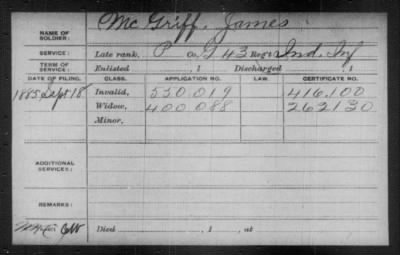 NAME OF SOLDIER: Mc Griff, James
SERVICE: Late rank, P Co. G 43 Reg't Ind. Inf
TERM OF SERVICE: Enlisted , 1 Discharged , 1
DATE OF FILING. CLASS. APPLICATION NO. LAW. CERTIFICATE NO.
1885 Sept 18 Invalid, 550.019 416.100
Widow, 400.088 262130
Minor,
ADDITIONAL SERVICES:
REMARKS:
Died , 1 , at